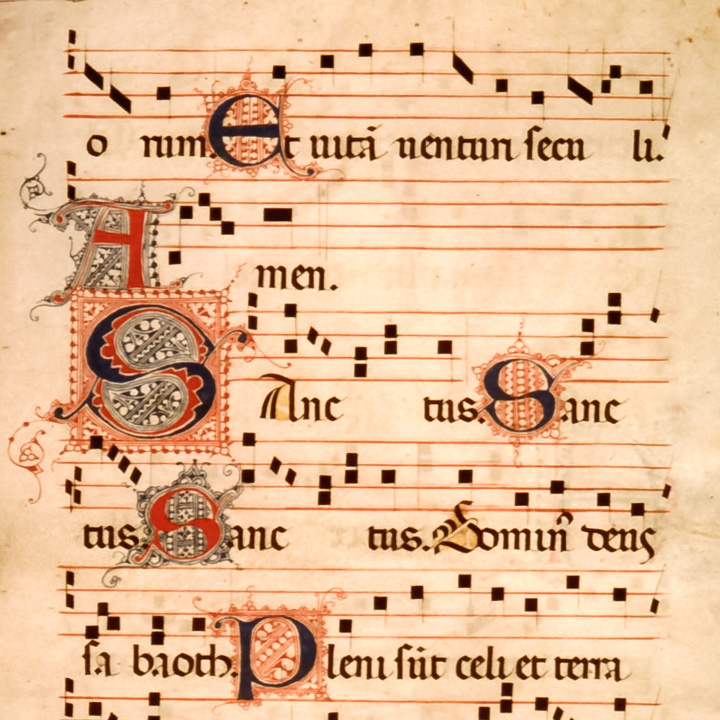 o rum. Et uitā uenturi secu li.
A men.
Sanc tus. Sanc
tus. Sanc tus. Domin̄ deus
sa baoth. Pleni sūt celi et terra